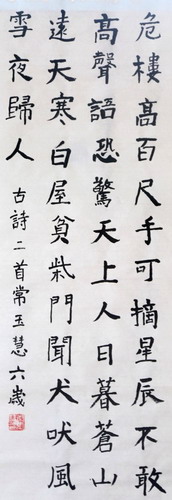 危樓高百尺手可摘星辰不敢
高聲語恐驚天上人日暮蒼山
遠天寒白屋貧柴門聞犬吠風
雪夜歸人
古詩二首常玉慧六歲